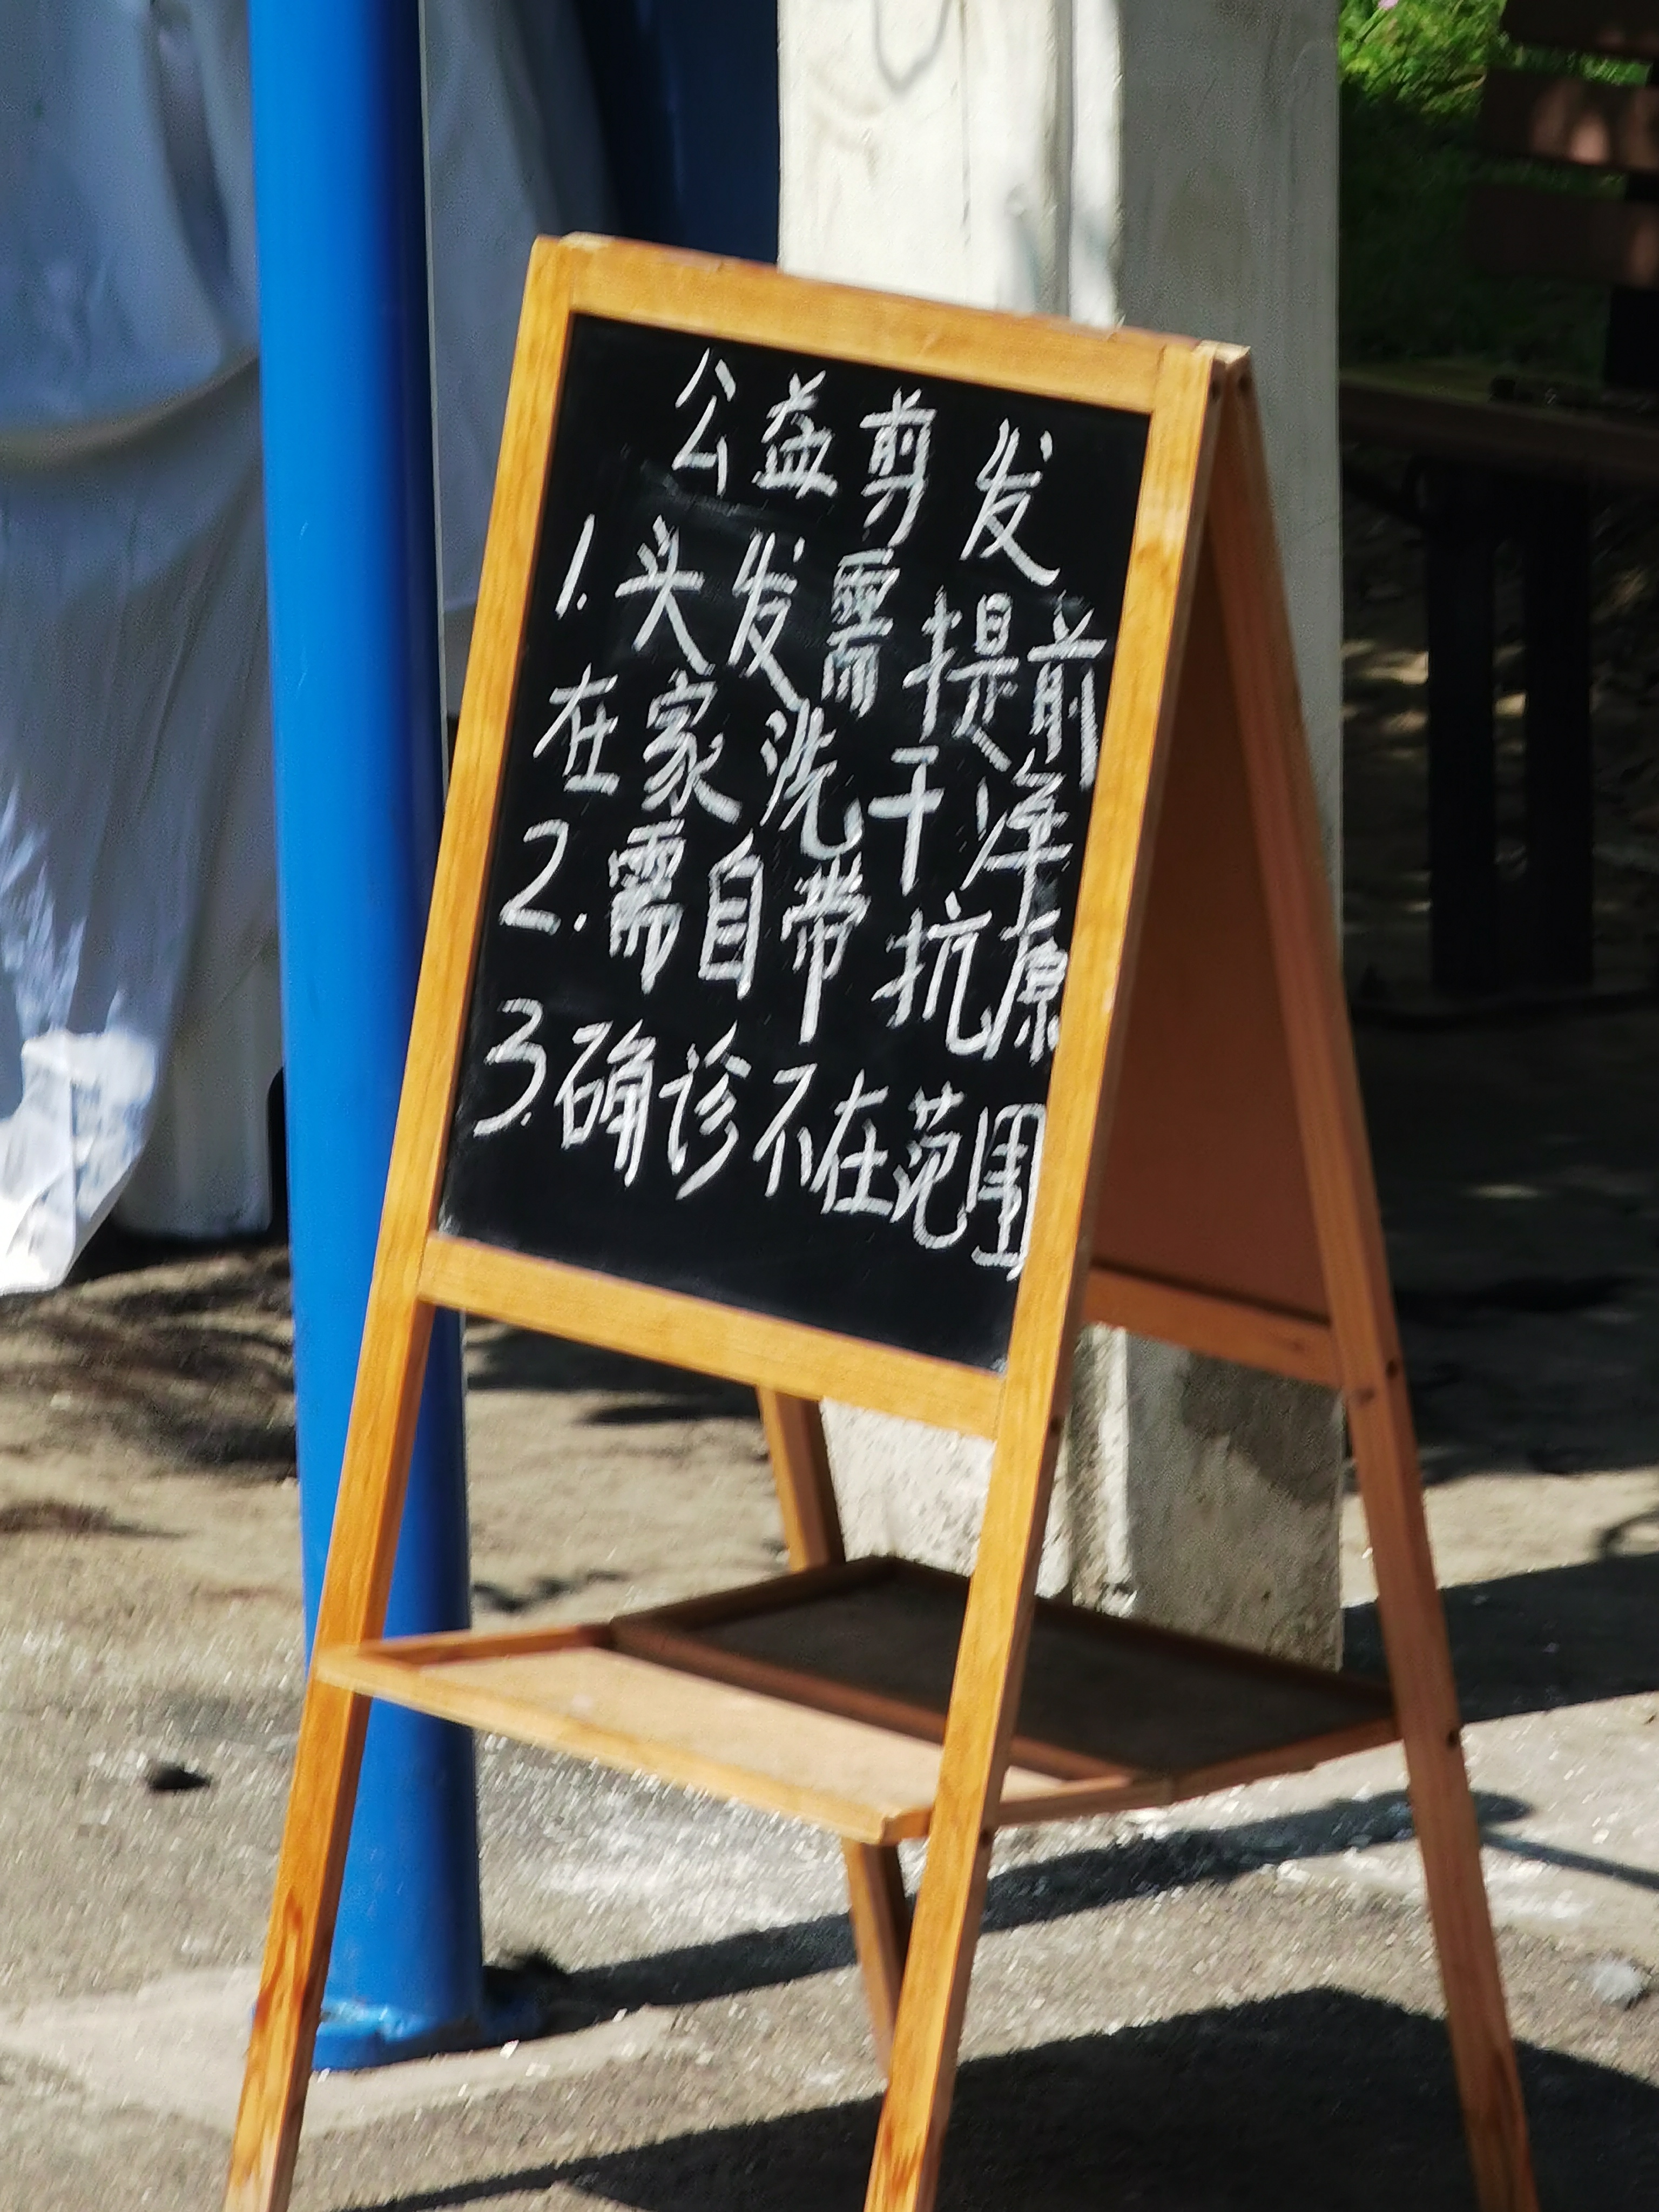 公益剪发
1.头发需提前
在家洗干净
2.需自带抗原
3.确诊不在范围